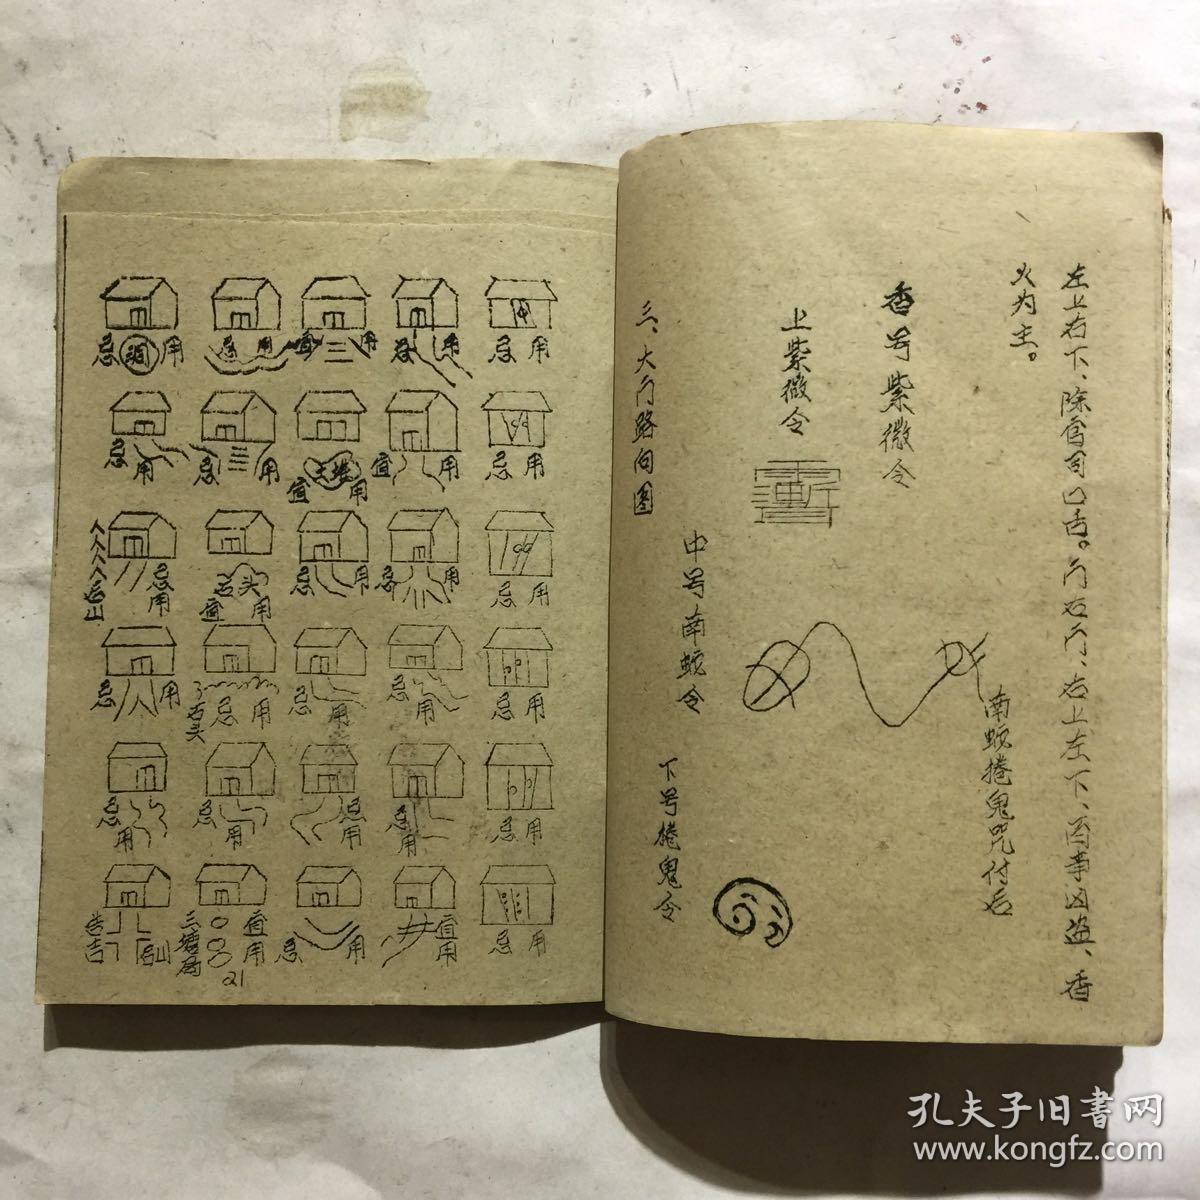 左上右下、除官司口舌。门右门、右上左下、因事凶盗、香
火为主。
南蛇捲鬼咒付后
香号紫微令
上紫微令
中号南蛇令
下号捲鬼令
三、大门路向图
忌用
忌用
忌用
忌用
忌用
忌用
忌用
宜用
忌用
忌用
忌用
宜用
宜三用
宜用
忌用
忌用
忌用
忌用
忌用
忌用
石头
宜用
石头
忌用
忌用
三塘局
宜用
忌用
忌用
忌用
忌用
忌用
21
孔夫子旧书网
www.kongfz.com